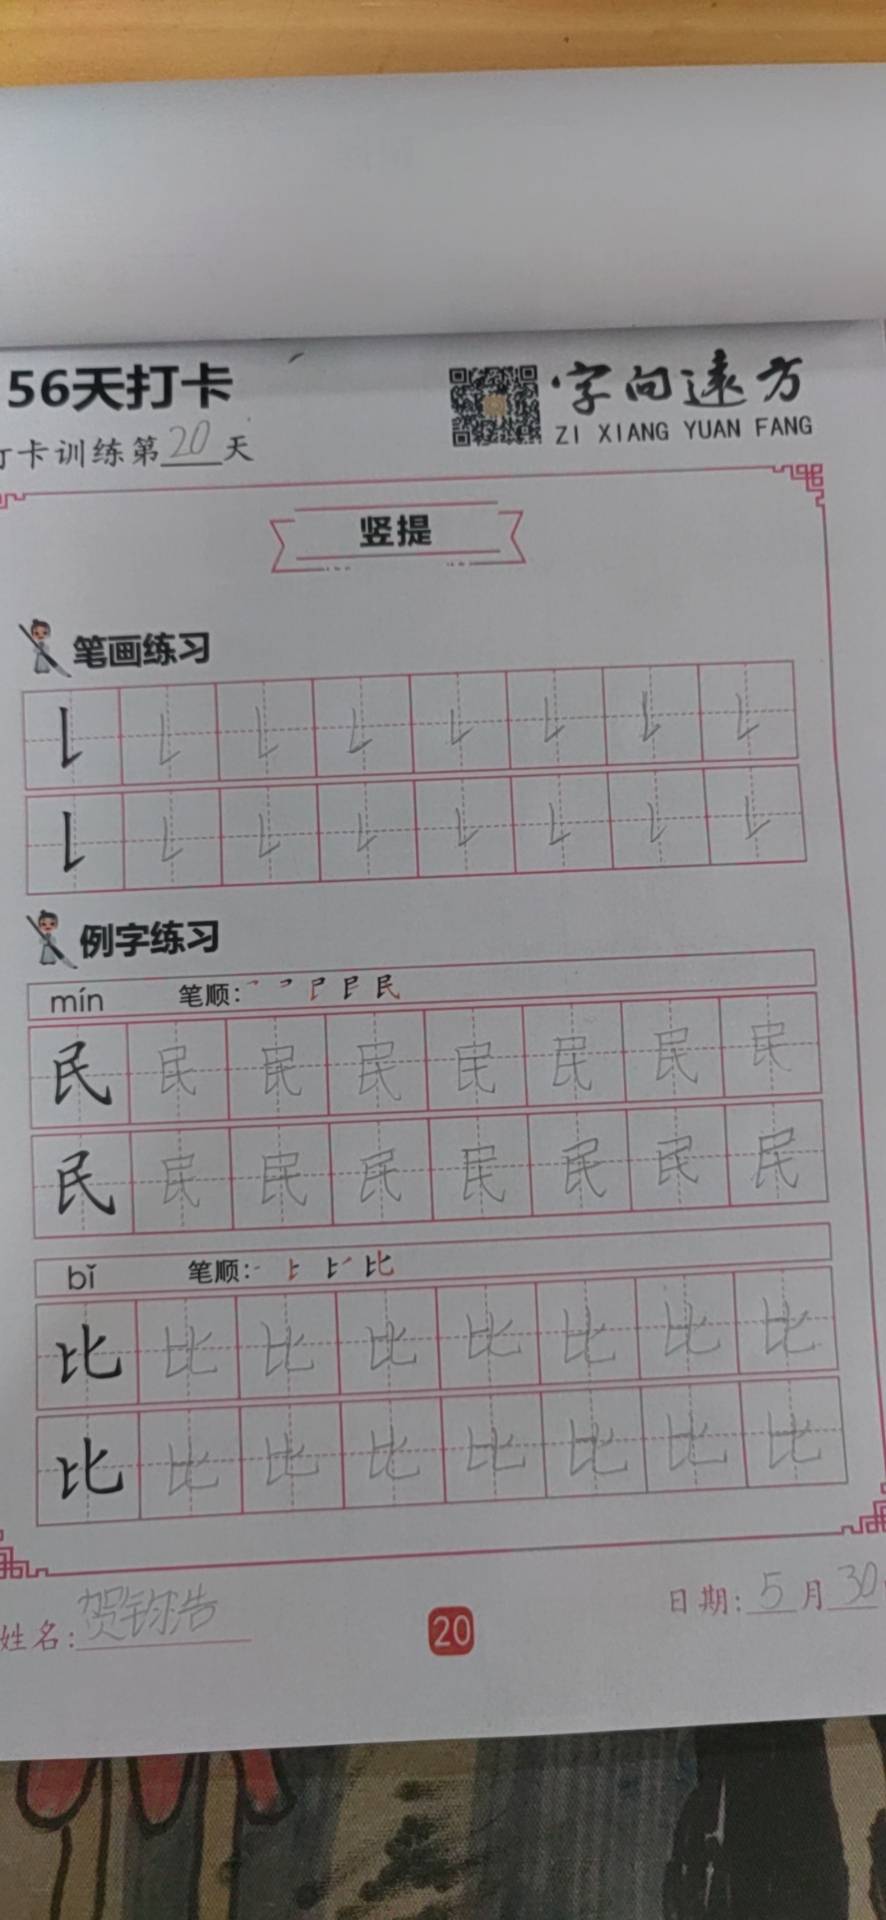 56天打卡
字向远方
打卡训练第20天
ZI XIANG YUAN FANG
竖提
笔画练习
例字练习
mín 笔顺:
民 民 民 民 民 民 民 民
民 民 民 民 民 民 民 民
bǐ 笔顺:
比 比 比 比 比 比 比 比
比 比 比 比 比 比 比 比
姓名:贺钧浩
日期:5月30
20